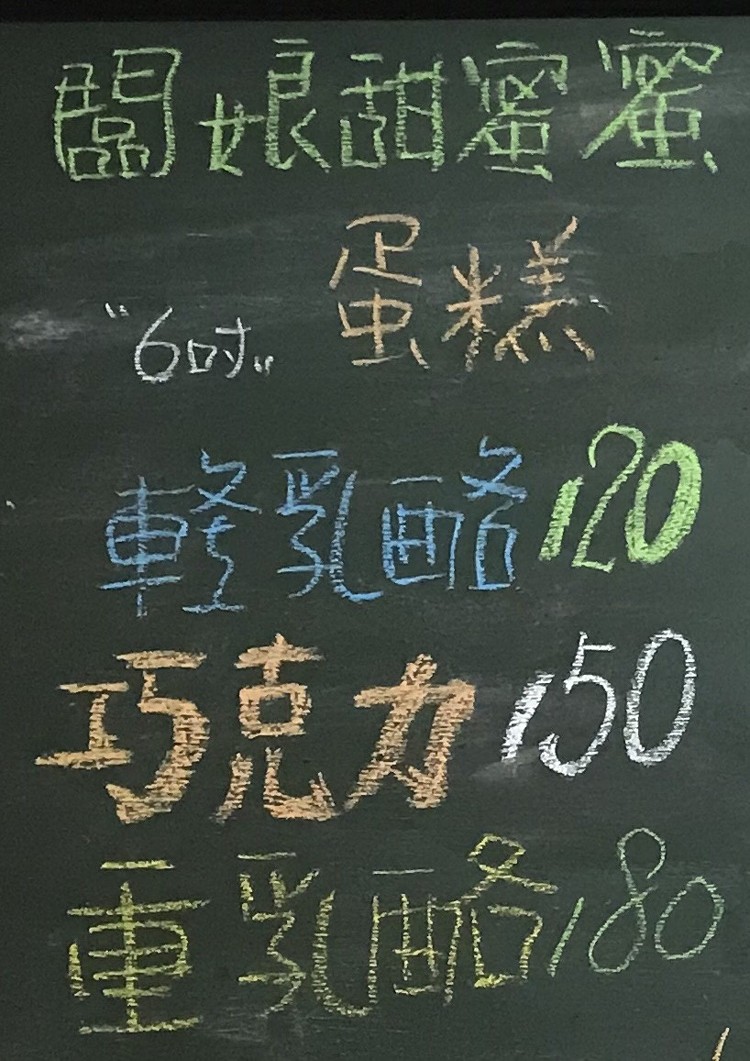 闆娘甜蜜蜜
蛋糕
"6吋"
輕乳酪 120
巧克力 150
重乳酪 180